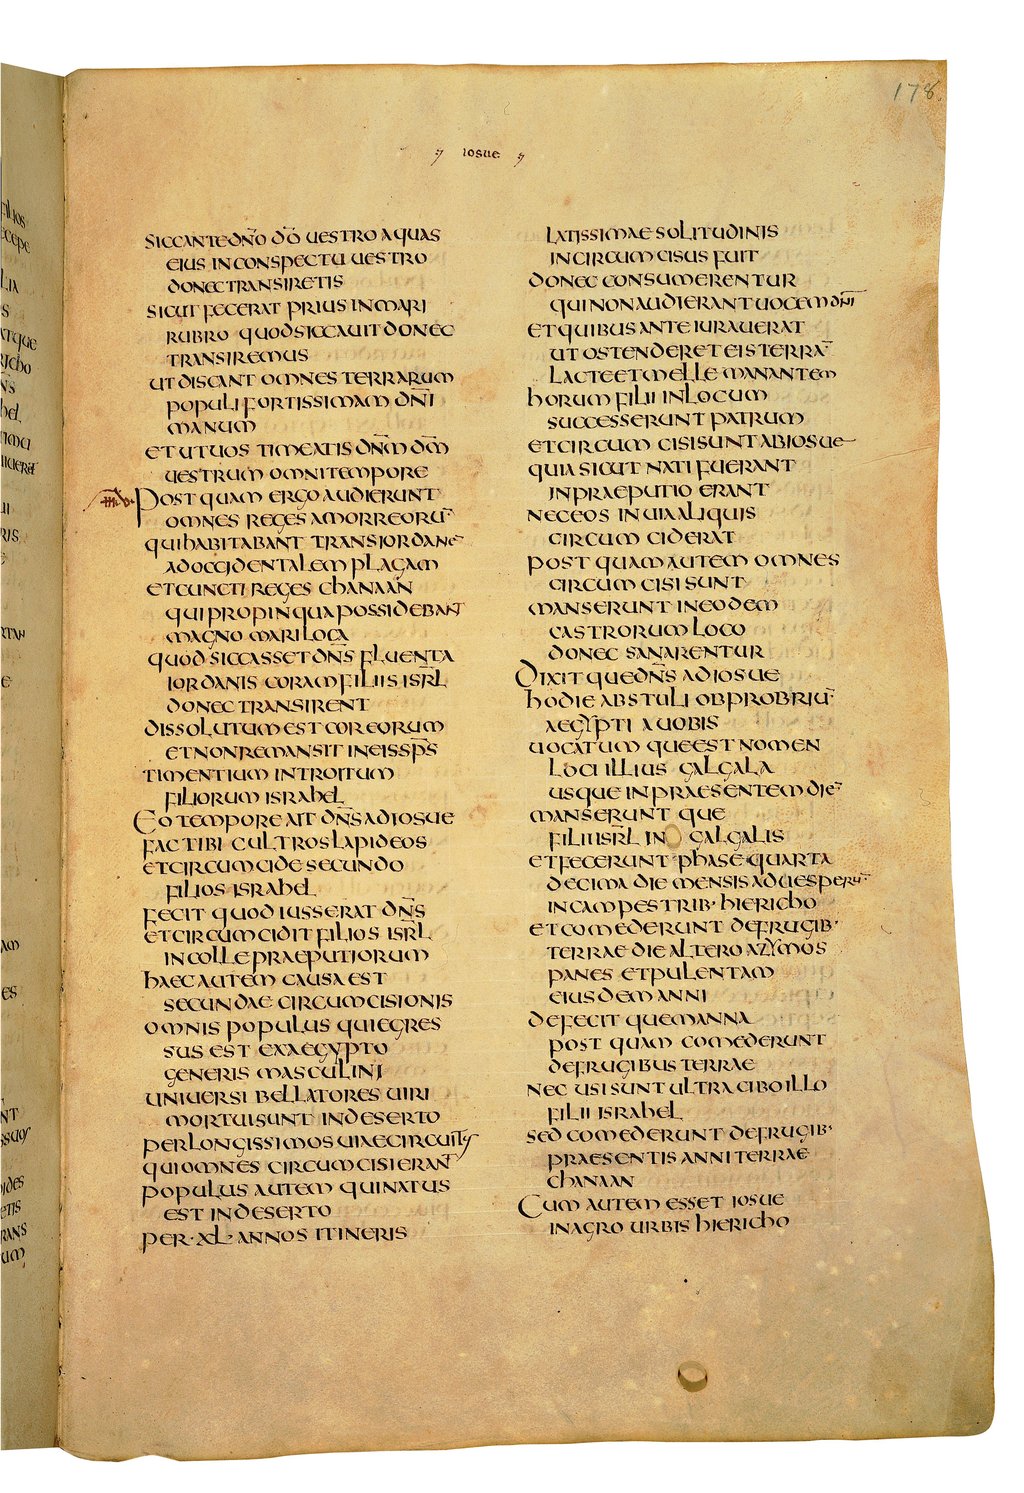 178
iosue
SICCANTE DN̄O D̄O UESTRO AQUAS
EIUS IN CONSPECTU UESTRO
DONEC TRANSIRETIS
SICUT FECERAT PRIUS IN MARI
RUBRO QUOD SICCAUIT DONEC
TRANSIREMUS
UT DISCANT OMNES TERRARUM
POPULI FORTISSIMAM DN̄I
MANUM
ET UT UOS TIMEATIS DN̄M D̄M
UESTRUM OMNI TEMPORE
POSTQUAM ERGO AUDIERUNT
OMNES REGES AMORREORŪ
QUI HABITABANT TRANS IORDANE̅
AD OCCIDENTALEM PLAGAM
ET CUNCTI REGES CHANAAN
QUI PROPINQUA POSSIDEBANT
MAGNO MARI LOCA
QUOD SICCASSET DN̄S FLUENTA
IORDANIS CORAM FILIIS ISR̄L
DONEC TRANSIRENT
DISSOLUTUM EST COR EORUM
ET NON REMANSIT IN EIS SP̄S
TIMENTIUM INTROITUM
FILIORUM ISRAHEL
EO TEMPORE AIT DN̄S AD IOSUE
FAC TIBI CULTROS LAPIDEOS
ET CIRCUMCIDE SECUNDO
FILIOS ISRAHEL
FECIT QUOD IUSSERAT DN̄S
ET CIRCUMCIDIT FILIOS ISR̄L
IN COLLE PRAEPUTIORUM
HAEC AUTEM CAUSA EST
SECUNDAE CIRCUMCISIONIS
OMNIS POPULUS QUI EGRES
SUS EST EX AEGYPTO
GENERIS MASCULINI
UNIUERSI BELLATORES UIRI
MORTUI SUNT IN DESERTO
PER LONGISSIMOS UIAE CIRCUITUS
QUI OMNES CIRCUMCISI ERANT
POPULUS AUTEM QUI NATUS
EST IN DESERTO
PER·XL·ANNOS ITINERIS
LATISSIMAE SOLITUDINIS
INCIRCUMCISUS FUIT
DONEC CONSUMERENTUR
QUI NON AUDIERANT UOCEM DN̄I
ET QUIBUS ANTE IURAUERAT
UT OSTENDERET EIS TERRA̅
LACTE ET MELLE MANANTEM
HORUM FILII IN LOCUM
SUCCESSERUNT PATRUM
ET CIRCUMCISI SUNT AB IOSUE
QUIA SICUT NATI FUERANT
IN PRAEPUTIO ERANT
NEC EOS IN UIA ALIQUIS
CIRCUMCIDERAT
POSTQUAM AUTEM OMNES
CIRCUMCISI SUNT
MANSERUNT IN EODEM
CASTRORUM LOCO
DONEC SANARENTUR
DIXITQUE DN̄S AD IOSUE
HODIE ABSTULI OBPROBRIU̅
AEGYPTI A UOBIS
UOCATUMQUE EST NOMEN
LOCI ILLIUS GALGALA
USQUE IN PRAESENTEM DIE̅
MANSERUNTQUE
FILII ISR̄L IN GALGALIS
ET FECERUNT PHASE QUARTA
DECIMA DIE MENSIS AD UESPERU̅
IN CAMPESTRIB· HIERICHO
ET COMEDERUNT DE FRUGIB·
TERRAE DIE ALTERO AZYMOS
PANES ET PULENTAM
EIUSDEM ANNI
DEFECITQUE MANNA
POSTQUAM COMEDERUNT
DE FRUGIBUS TERRAE
NEC USI SUNT ULTRA CIBO ILLO
FILII ISRAHEL
SED COMEDERUNT DE FRUGIB·
PRAESENTIS ANNI TERRAE
CHANAAN
CUM AUTEM ESSET IOSUE
IN AGRO URBIS HIERICHO